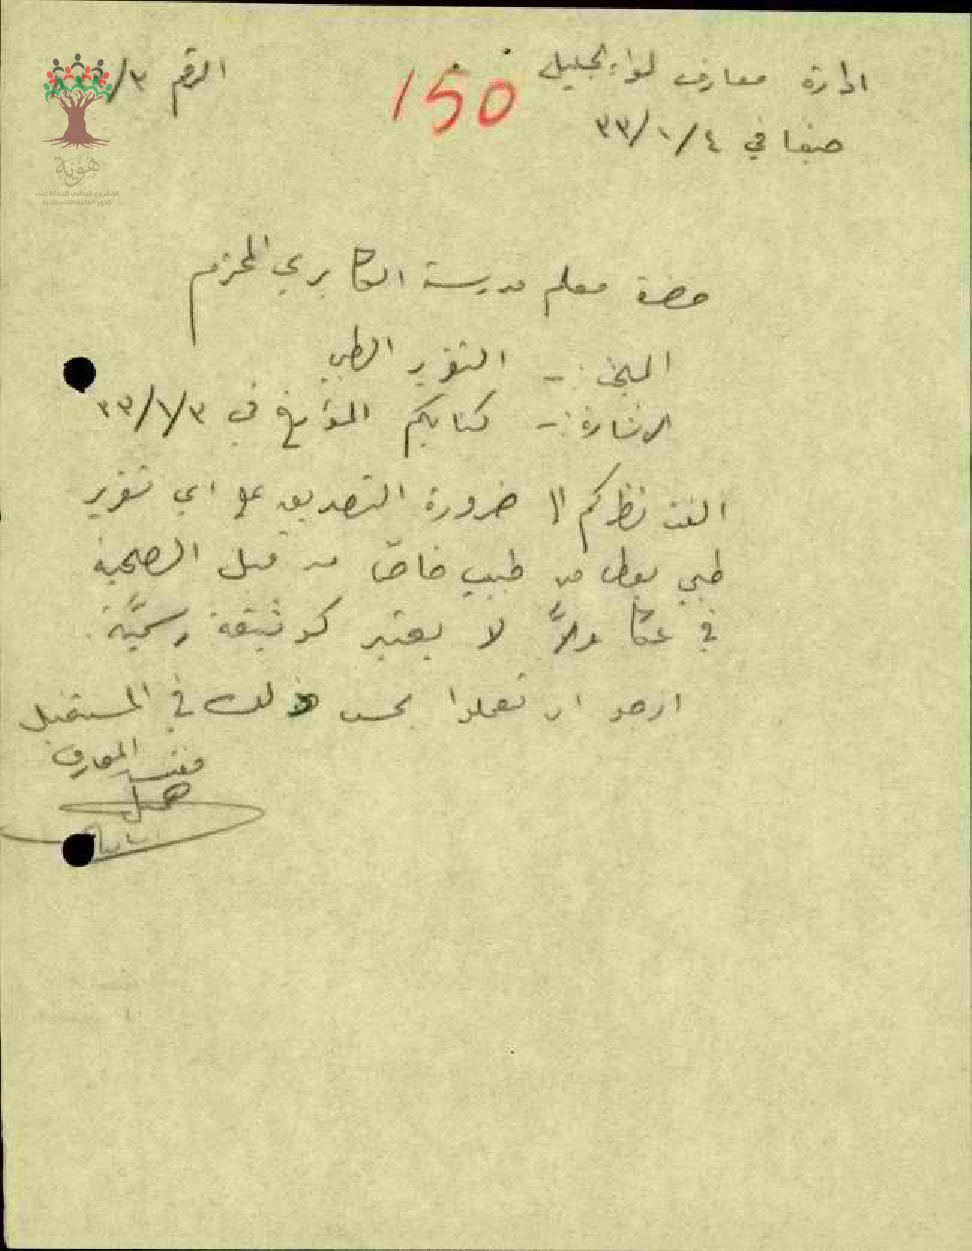 ادارة معارف لواء الجليل
الرقم ٣/
150
صفد في ٣٣/١/٤
هوية
المشروع الوطني للحفاظ على
جذور العائلة الفلسطينية
حضرة معلم مدرسة الكابري المحترم
المبحث :- التقرير الطبي
الاشارة :- كتابكم المؤرخ في ٣٣/١/٣
الفت نظركم الى ضرورة التصديق على اي تقرير
طبي يعطى من طبيب خاص من قبل الصحية
في عكا والاّ لا يعتبر كوثيقة رسميّة.
ارجو ان تعملوا بحسب ذلك في المستقبل
مفتش المعارف